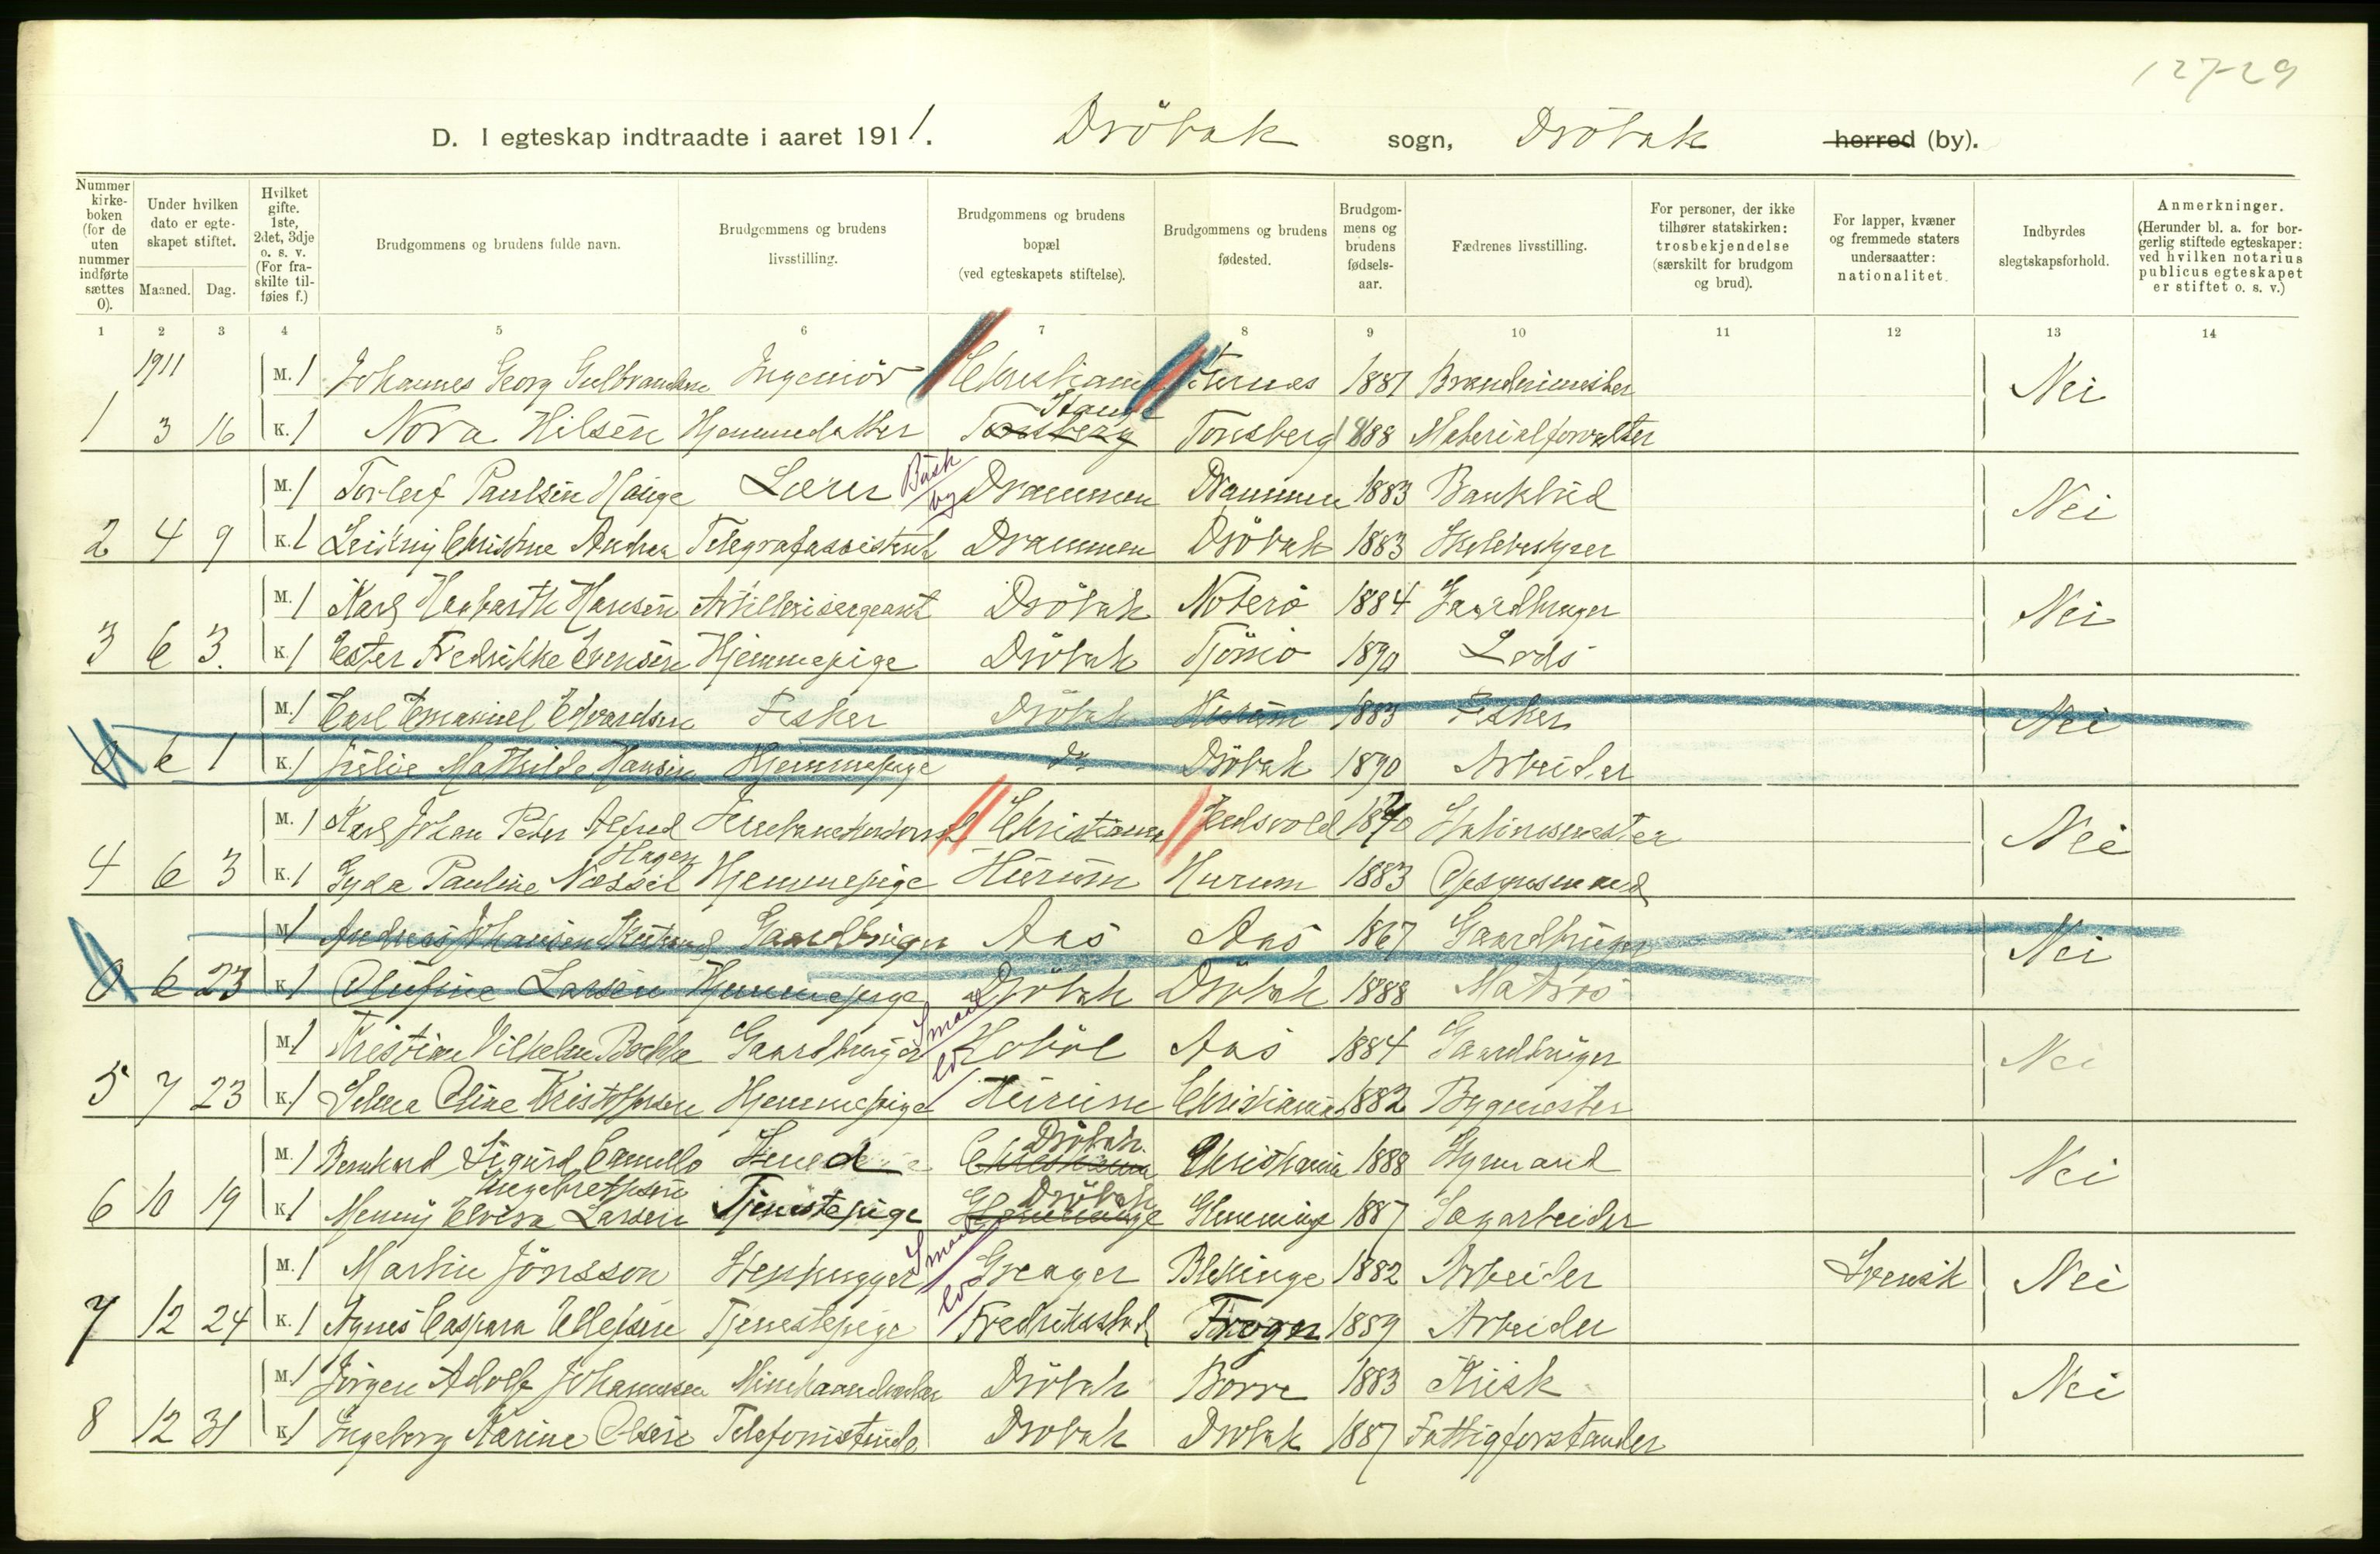 127-29
D. I egteskap indtraadte i aaret 1911. Dröbak sogn, Dröbak herred (by).
Nummer kirke-boken (for de uten nummer indførte sættes 0).
Under hvilken dato er egte-skapet stiftet.
Maaned. Dag.
Hvilket gifte. 1ste, 2det, 3dje o. s. v. (For fra-skilte til-føies f.)
Brudgommens og brudens fulde navn.
Brudgommens og brudens livsstilling.
Brudgommens og brudens bopæl (ved egteskapets stiftelse).
Brudgommens og brudens fødested.
Brudgom-mens og brudens fødsels-aar.
Fædrenes livsstilling.
For personer, der ikke tilhører statskirken: trosbekjendelse (særskilt for brudgom og brud).
For lapper, kvæner og fremmede staters undersaatter: nationalitet.
Indbyrdes slegtskapsforhold.
Anmerkninger. (Herunder bl. a. for bor-gerlig stiftede egteskaper: ved hvilken notarius publicus egteskapet er stiftet o. s. v.)
1 2 3 4 5 6 7 8 9 10 11 12 13 14
1911 M. 1 Johannes Georg Gulbrandsen Ingeniör Christiania 1887 Nei
Stange
1 3 16 K. 1 Nora Hilsen Hjemmedatter Tonsberg Tonsberg 1888 Materialforvalter
Busk by
M. 1 Torleif Paulsen Hauge Lærer Drammen Drammen 1883 Bankbud Nei
2 4 9 K. 1 Christine Andrea Telegrafassistent Drammen Dröbak 1883
M. 1 Karl Hagbarth Hansen Artillerisergeant Dröbak Noterö 1884 Gaardbruger Nei
3 6 3. K. 1 Ester Fredrikke Evensen Hjemmepige Dröbak Tjömö 1890 Lods
M. 1 Carl Emanuel Edvardsen Fisker Dröbak Hurum 1883 Fisker Nei
0 6 1 K. 1 Julie Mathilde Hansen Hjemmepige do Dröbak 1890 Arbeider
M. 1 Karl Johan Peder Alfred Christiania Eidsvold 1870 Stationsmester Nei
Hagen
4 6 3 K. 1 Gyda Pauline Næssel Hjemmepige Hurum Hurum 1883 Opsynsmand
M. 1 Andreas Johansen Gaardbruger Aas Aas 1867 Gaardbruger Nei
0 6 23 K. 1 Olufine Larsen Hjemmepige Dröbak Dröbak 1888 Matros
Smaal
M. 1 Kristian Vilhelm Gaardbruger Hobøl Aas 1884 Gaardbruger Nei
5 7 23 K. 1 Selma Oline Kristoffersen Hjemmepige Hurum Christiania 1882 Bygmester
Dröbak
M. 1 Bernhard Sigurd Camillo Smed Christiania Christiania 1888 Styrmand Nei
Ingebrethsen Dröbak
6 10 19 K. 1 Menny Elvira Larsen Tjenestepige Glemminge Glemminge 1887 Sagarbeider
Smaal
M. 1 Martin Jönsson Stenhugger Greager Blekinge 1882 Arbeider Svensk Nei
7 12 24 K. 1 Agnes Caspara Ellefsen Tjenestepige Fredrikstad Frogn 1889 Arbeider
M. 1 Jörgen Adolf Johannesen Dröbak Borre 1883 Kusk Nei
8 12 31 K. 1 Ingeborg Karine Olsen Telefonistinde Drobak Drobak 1887 Fattigforstander